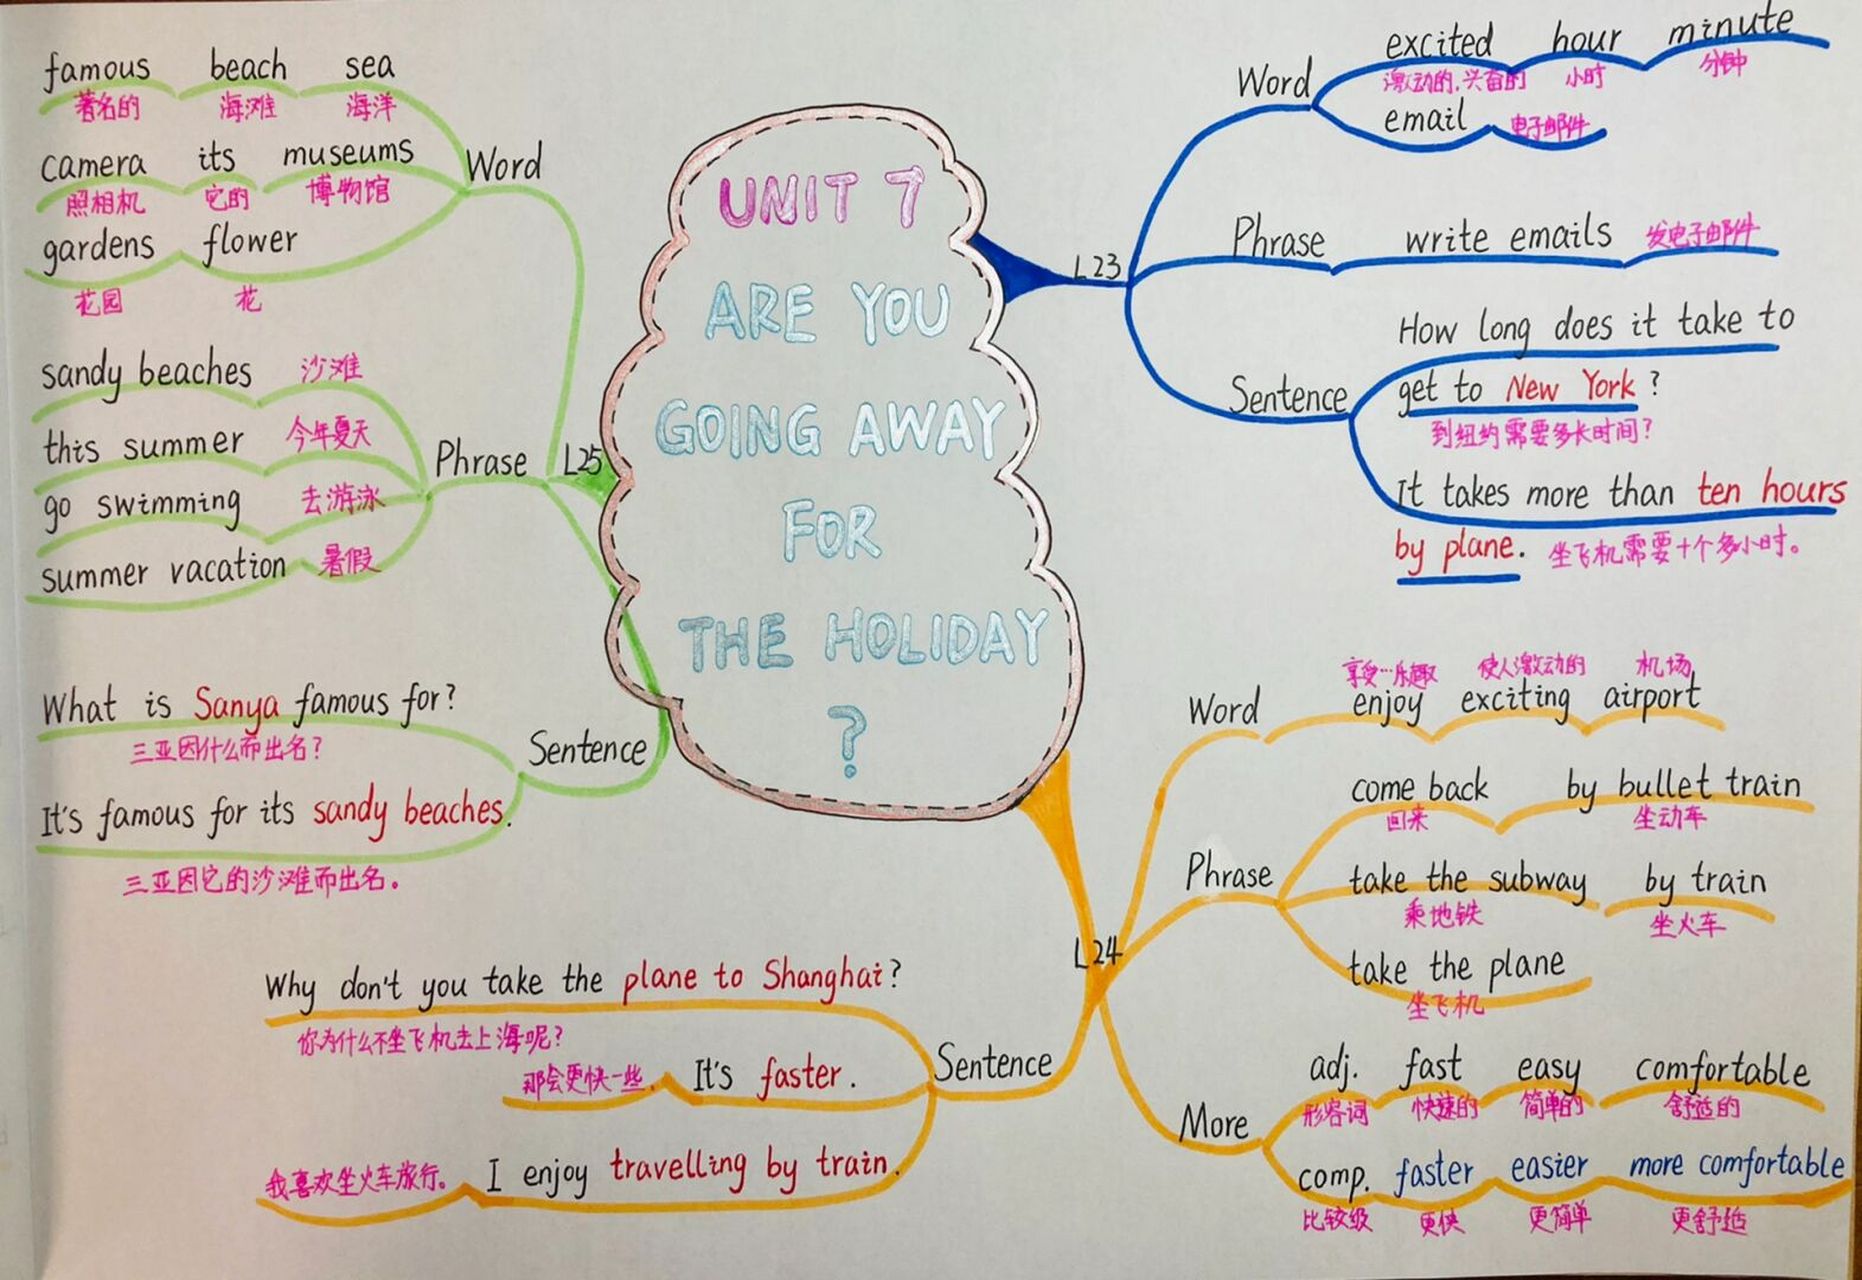 UNIT 7
ARE YOU
GOING AWAY
FOR
THE HOLIDAY
?
L23
Word
excited hour minute
激动的,兴奋的 小时 分钟
email 电子邮件
Phrase
write emails 发电子邮件
Sentence
How long does it take to
get to New York?
到纽约需要多长时间?
It takes more than ten hours
by plane. 坐飞机需要十个多小时。
L24
Word
享受…乐趣 使人激动的 机场
enjoy exciting airport
Phrase
come back by bullet train
回来 坐动车
take the subway by train
乘地铁 坐火车
take the plane
坐飞机
More
adj. fast easy comfortable
形容词 快速的 简单的 舒适的
comp. faster easier more comfortable
比较级 更快 更简单 更舒适
Sentence
Why don't you take the plane to Shanghai?
你为什么不坐飞机去上海呢?
那会更快一些. It's faster.
我喜欢坐火车旅行。 I enjoy travelling by train.
L25
Word
famous beach sea
著名的 海滩 海洋
camera its museums
照相机 它的 博物馆
gardens flower
花园 花
Phrase
sandy beaches 沙滩
this summer 今年夏天
go swimming 去游泳
summer vacation 暑假
Sentence
What is Sanya famous for?
三亚因什么而出名?
It's famous for its sandy beaches.
三亚因它的沙滩而出名。